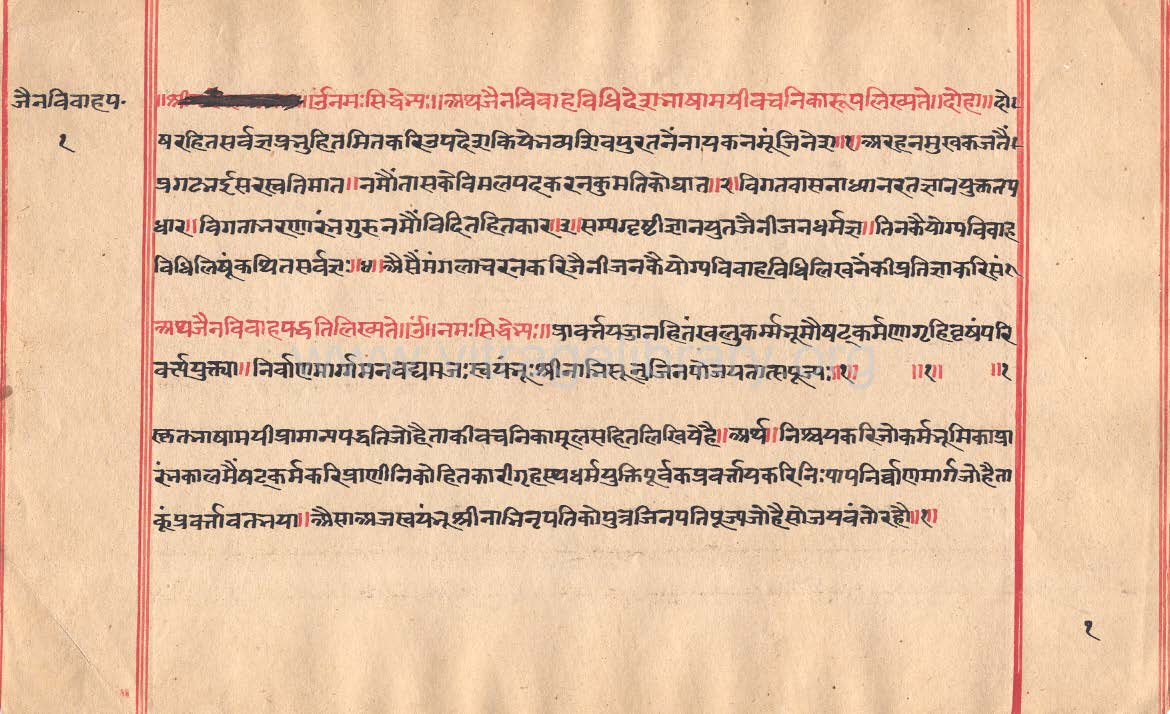 जैनविवाहप॰
१
॥श्री ॥ॐनमःसिद्धेभ्यः॥अथजैनविवाहविधिदेशभाषामयीवचनिकारूपलिख्यते॥दोहा॥दो
षरहितसर्वज्ञप्रभुहितमितकरिउपदेशकियेभव्यशिवपुरतनैंनायकनमूंजिनेश॥१॥अरहनमुखकजतैं
प्रगटभईसरस्वतिमात॥नमौंतासकोविमलपदकरनकुमतिकोघात॥२॥विगतवासनाध्यानरतज्ञानयुक्ततप
धार॥विगताभरणारंभगुरुनमौंविदितहितकार॥३॥सम्यग्दृष्टीज्ञानयुतजैनीजनधर्मज्ञ॥तिनकैयोग्यविवाह
विधिलिषूंकथितसर्वज्ञः॥४॥अैसैंमंगलाचरनकरिजैनीजनकैयोग्यविवाहविधिलिखनेंकीप्रतिज्ञाकरिसं
अथजैनविवाहपद्धतिलिख्यते॥ॐ॥नमःसिद्धेभ्यः॥प्रावर्त्तयज्जनहितंखलुकर्म्मभूमौषट्कर्मणागृहिवृषंपरि
वर्त्त्ययुक्त्या॥निर्वाणमार्गमनवद्यमजःस्वयंभूःश्रीनाभिसूनुजिनपोजयतात्सपूज्यः॥१॥ ॥१॥ ॥१
स्कृतभाषामयीप्रामान्यपद्धतिजोहैताकीवचनिकामूलसहितलिखियेहै॥अर्थ॥निश्चयकरिजोकर्मभूमिकाप्रा
रंभकालमैंषट्कर्मकरिप्राणीनिकोहितकारीगृहस्थधर्मयुक्तिपूर्वकप्रवर्त्तायकरिनिःपापनिर्व्वाणमार्गजोहैता
कूंप्रवर्त्तावतभया॥अैसाअजस्वयंभूश्रीनाभिनृपतिकोपुत्रजिनपतिपूज्यजोहैसोजयवंतोरहौ॥१॥
१